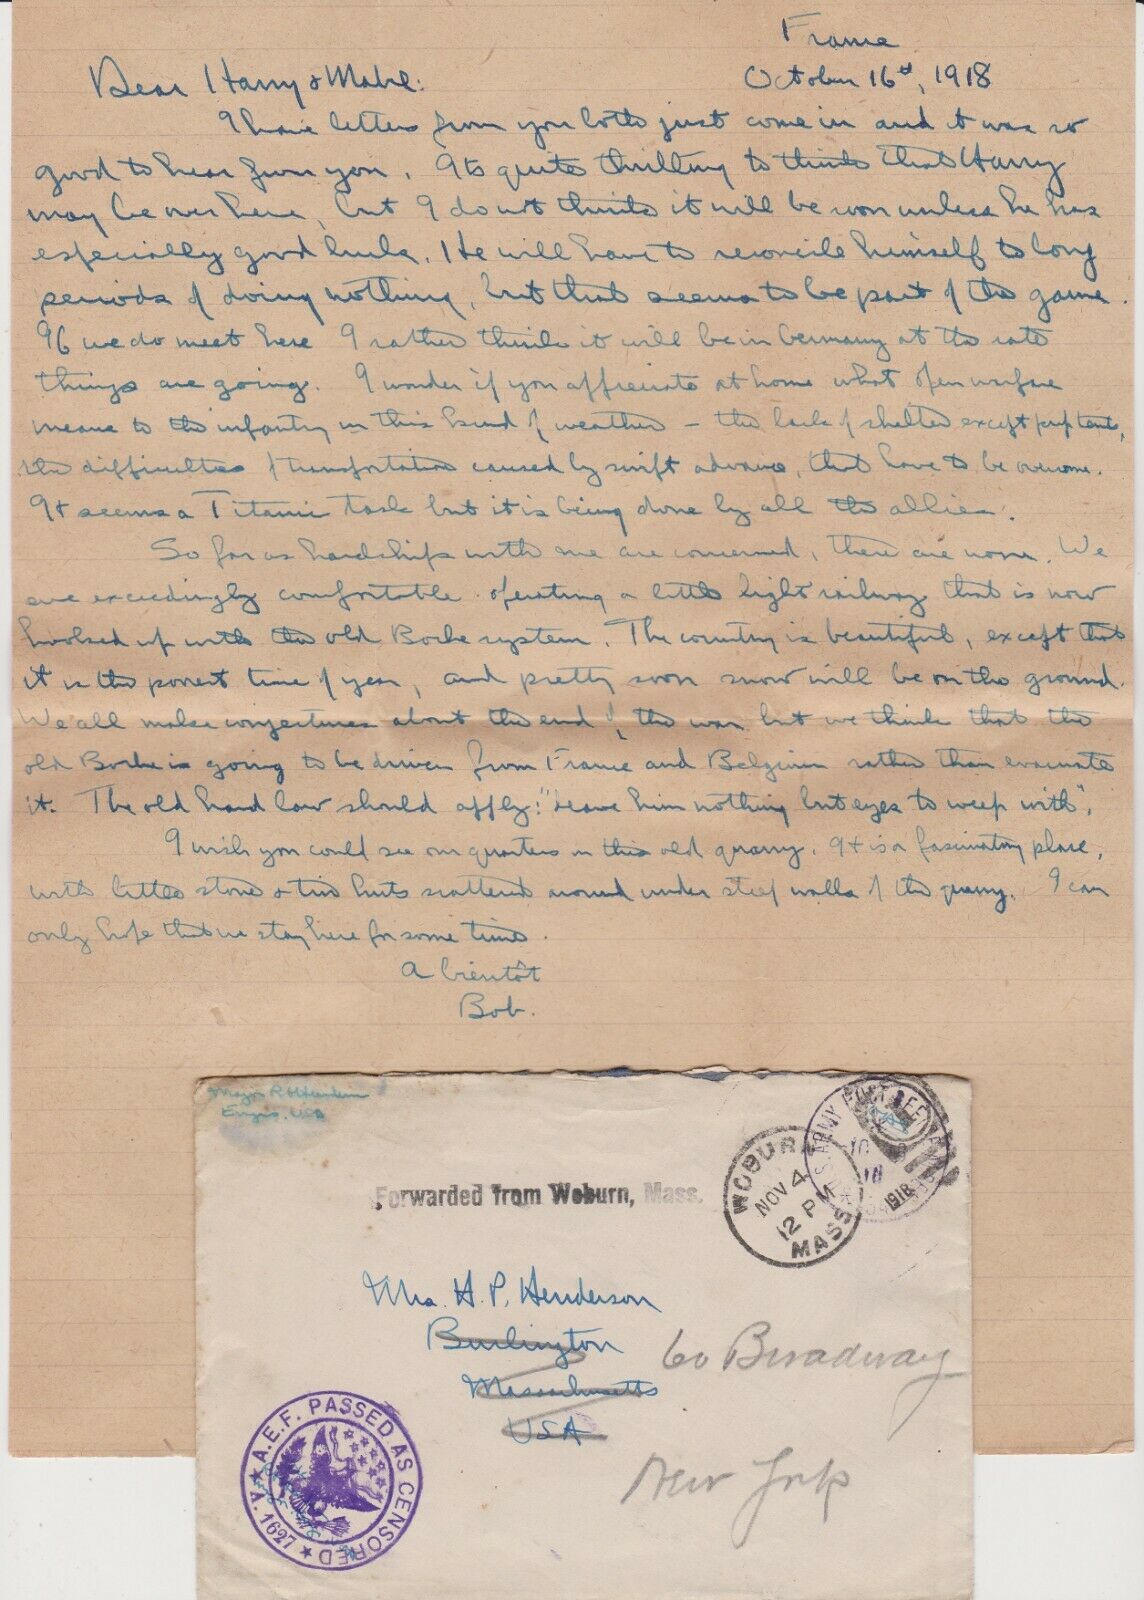 France
October 16th, 1918
Dear Harry & Mabel:
I have letters from you both just come in and it was so
good to hear from you. Its quite thrilling to think that Harry
may be over here, but I do not think it will be soon unless he has
especially good luck. He will have to reconcile himself to long
periods of doing nothing, but that seems to be part of the game.
If we do meet here I rather think it will be in Germany at the rate
things are going. I wonder if you appreciate at home what open warfare
means to the infantry in this kind of weather – the lack of shelter except pup tents,
the difficulties of transportation caused by swift advance, that have to be overcome.
It seems a Titanic task but it is being done by all the allies.
So far as hardships with me are concerned, there are none. We
are exceedingly comfortable operating a little light railway that is now
hooked up with the old Boche system. The country is beautiful, except that
it is the poorest time of year, and pretty soon snow will be on the ground.
We all make conjectures about the end of the war but we think that the
old Boche is going to be driven from France and Belgium rather than evacuate
it. The old hard law should apply: "Leave him nothing but eyes to weep with".
I wish you could see our quarters in this old quarry. It is a fascinating place,
with little stone & tin huts scattered around under steep walls of the quarry. I can
only hope that we stay here for some time.
A bientôt
Bob.
Major R Henderson
Engrs. USA
Forwarded from Woburn, Mass.
WOBURN
NOV 4
12 PM
MASS.
U.S. ARMY POST OFFICE
1918
Mrs. H. P. Henderson
Burlington
Massachusetts
USA
60 Broadway
New York
A.E.F. PASSED AS CENSORED
A. 1627